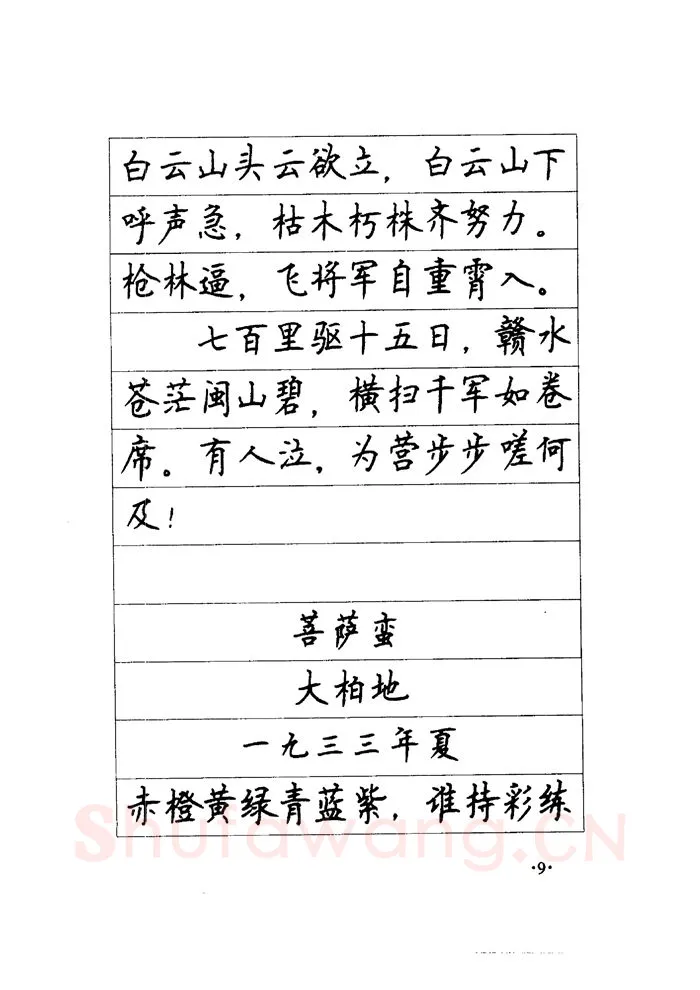 白云山头云欲立，白云山下
呼声急，枯木朽株齐努力。
枪林逼，飞将军自重霄入。
七百里驱十五日，赣水
苍茫闽山碧，横扫千军如卷
席。有人泣，为营步步嗟何
及！
菩萨蛮
大柏地
一九三三年夏
赤橙黄绿青蓝紫，谁持彩练
Shufawang.CN
·9·